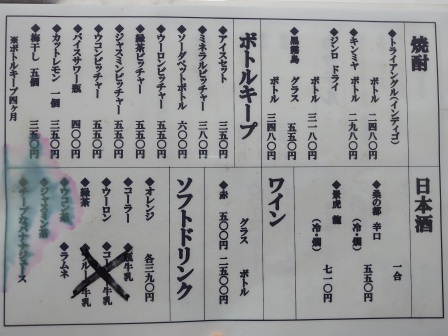 焼酎
◆トライアングル(インディゴ)
ボトル 二四八〇円
◆キンミヤ
ボトル 二九八〇円
◆ジンロ ドライ
ボトル 三一八〇円
◆黒霧島 グラス 五五〇円
ボトル 三四八〇円
ボトルキープ
◆アイスセット 三五〇円
◆ミネラルピッチャー 三八〇円
◆ソーダペットボトル 六〇〇円
◆ウーロンピッチャー 五五〇円
◆緑茶ピッチャー 五五〇円
◆ジャスミンピッチャー 五五〇円
◆ウコンピッチャー 五五〇円
◆バイスサワー瓶 四〇〇円
◆カットレモン 一個 三五〇円
◆梅干し 五個 三五〇円
※ボトルキープ四ヶ月
日本酒
一合
辛口
(冷・燗) 五五〇円
(冷・燗) 七一〇円
ワイン
グラス ボトル
◆赤 五〇〇円 二五〇〇円
ソフトドリンク
◆オレンジ 各三九〇円
◆コーラ
◆ウーロン
◆緑茶
◆ウコン茶
◆ジャスミン茶
牛乳
牛乳
牛乳
◆ラムネ